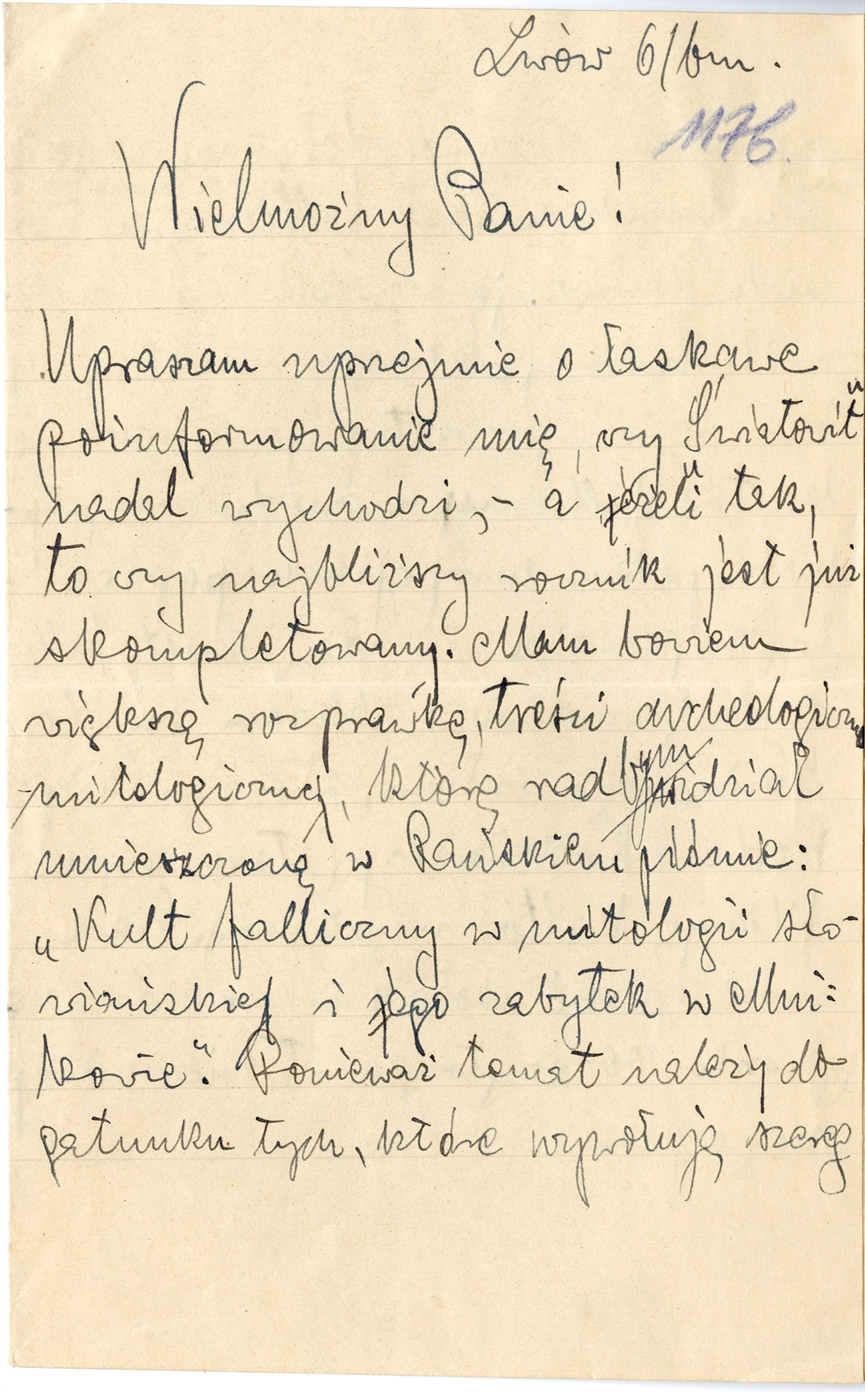 Lwów 6/bm.
1176.
Wielmożny Panie!
Upraszam uprzejmie o łaskawe
poinformowanie mię, czy „Światowit"
nadal wychodzi, – a jeżeli tak,
to czy najbliższy rocznik jest już
skompletowany. Mam bowiem
większą rozprawkę, treści archeologiczno
-mitologicznej, którą radbym widział
umieszczoną w Pańskiem piśmie:
„Kult falliczny w mitologii sło-
wiańskiej i jego zabytek w Mni-
kowie". Ponieważ temat należy do
gatunku tych, które wywołują szereg